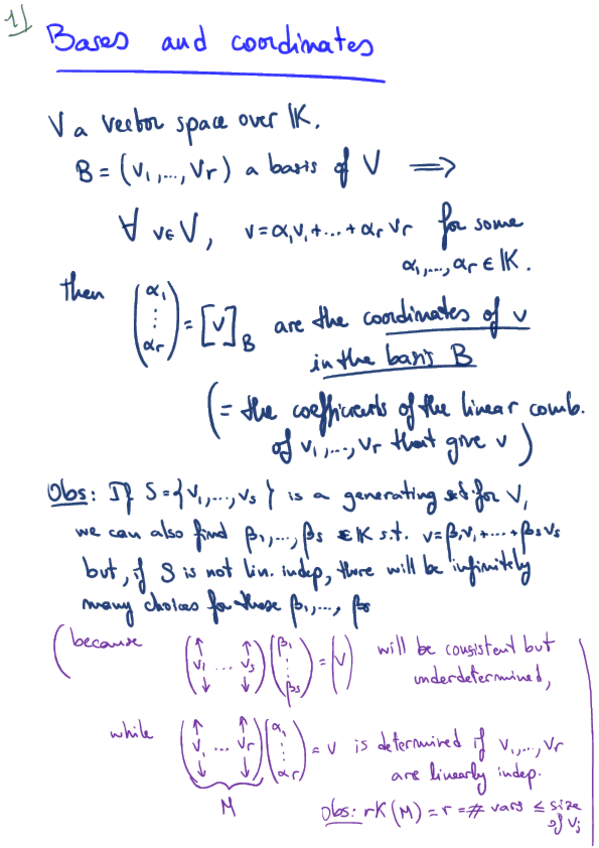 1)
Bases and coordinates
V a vector space over 𝕂.
B = (v₁,..., vᵣ) a basis of V ⟹
∀ v∈V, v = α₁v₁+...+αᵣvᵣ for some
α₁,...,αᵣ ∈ 𝕂.
then (α₁ ⋮ αᵣ) = [v]_B are the coordinates of v
in the basis B
(= the coefficients of the linear comb.
of v₁,..., vᵣ that give v)
Obs: If S = {v₁,..., vₛ} is a generating set for V,
we can also find β₁,..., βₛ ∈ 𝕂 s.t. v = β₁v₁+...+βₛvₛ
but, if S is not lin. indep, there will be infinitely
many choices for these β₁,..., βₛ
(because (v₁ ... vₛ)(β₁ ⋮ βₛ) = (v) will be consistent but
underdetermined,
while (v₁ ... vᵣ)(α₁ ⋮ αᵣ) = v is determined if v₁,..., vᵣ
are linearly indep.
M
Obs: rK(M) = r = # vars ≤ size
of vⱼ